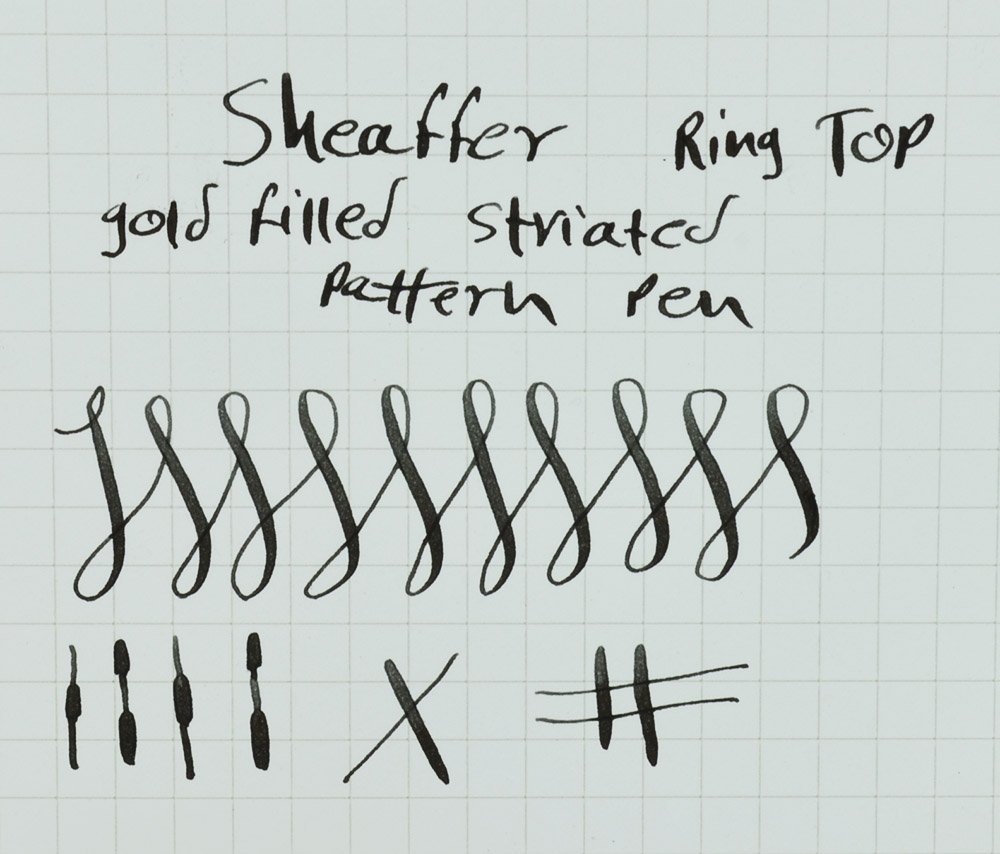 Sheaffer Ring Top
gold filled striated
pattern pen